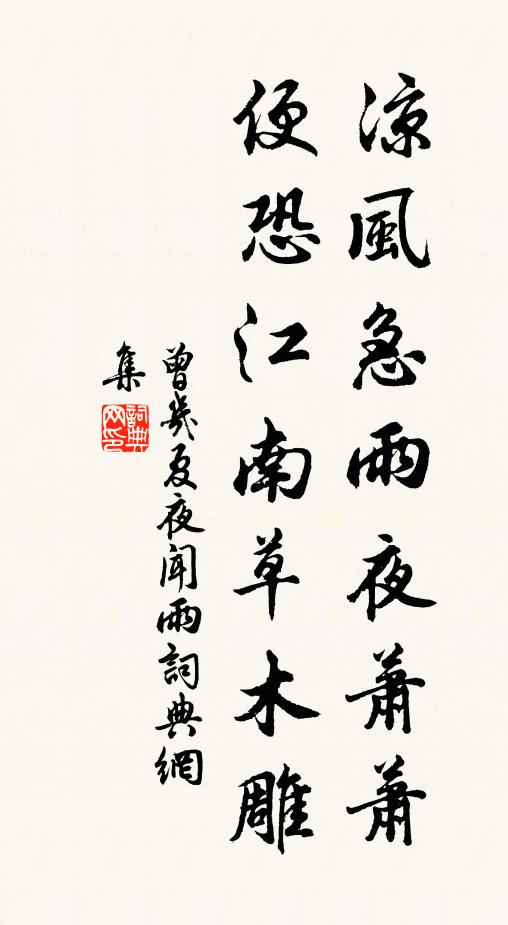 涼風急雨夜蕭蕭
便恐江南草木雕
曾幾夏夜聞雨詞典網
集
詞典
网印